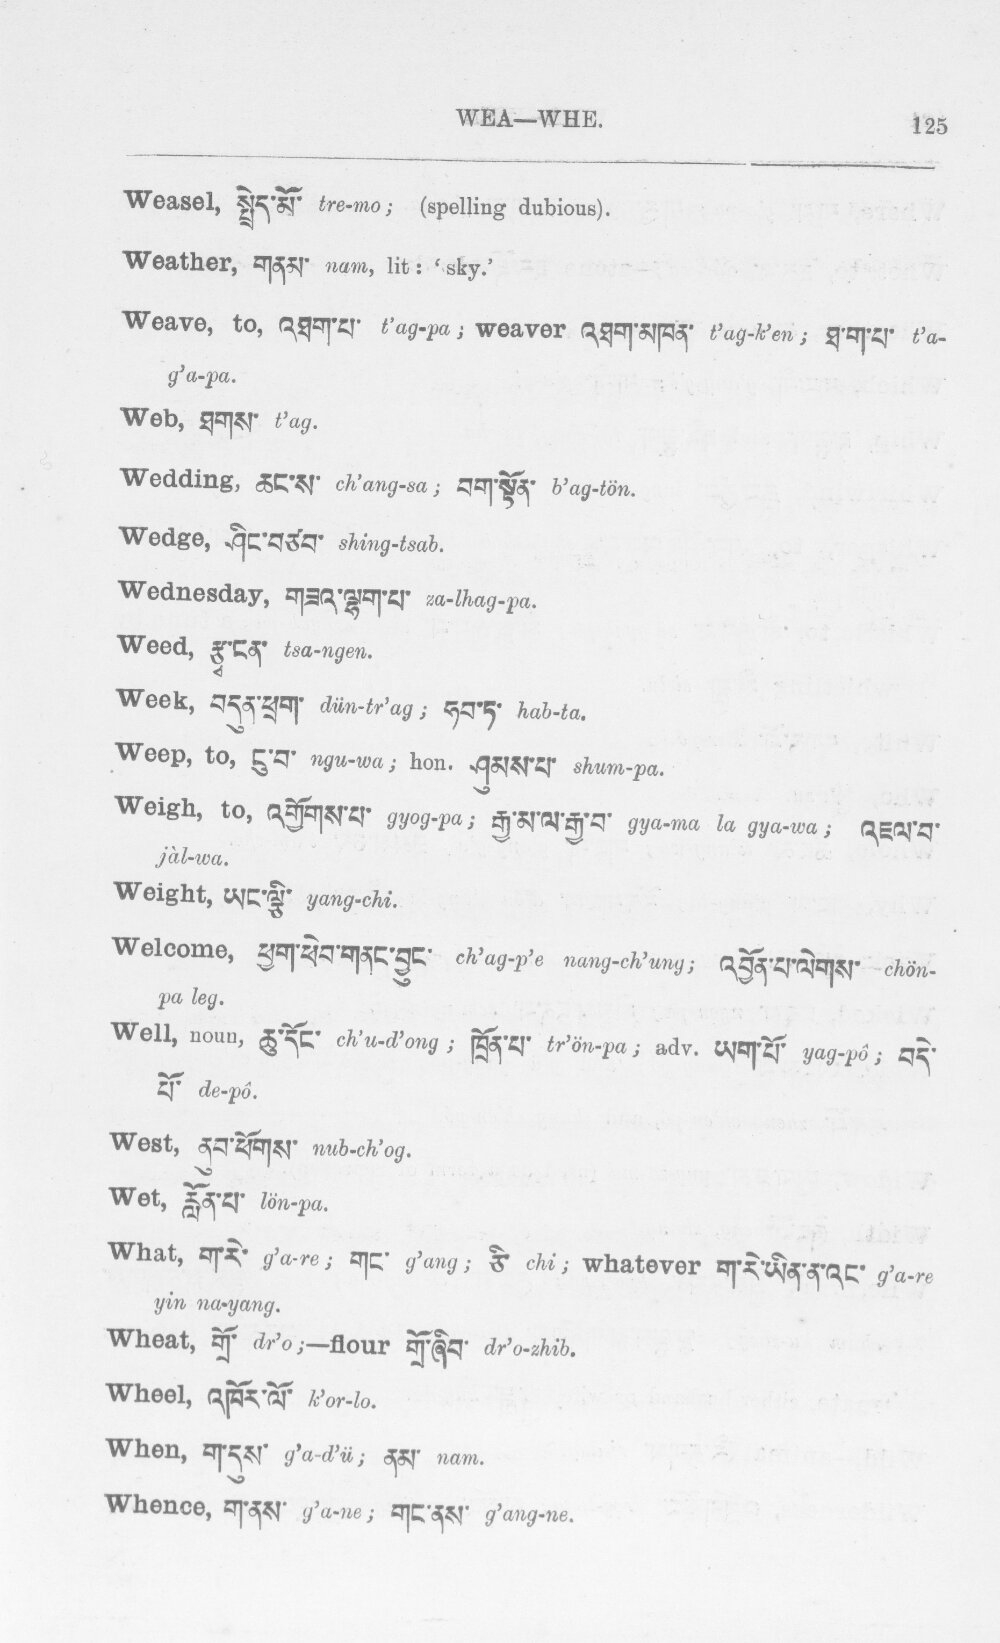 WEA—WHE. 125
Weasel, སྤྲེད་མོ་ tre-mo; (spelling dubious).
Weather, གནམ་ nam, lit: ‘sky.’
Weave, to, འཐག་པ་ t’ag-pa; weaver འཐག་མཁན་ t’ag-k’en; ཐ་ག་པ་ t’a-
g’a-pa.
Web, ཐགས་ t’ag.
Wedding, ཆང་ས་ ch’ang-sa; བག་སྟོན་ b’ag-tön.
Wedge, ཤིང་བཙབ་ shing-tsab.
Wednesday, གཟའ་ལྷག་པ་ za-lhag-pa.
Weed, རྩྭ་ངན་ tsa-ngen.
Week, བདུན་ཕྲག་ dün-tr’ag; ཧབ་ཏ་ hab-ta.
Weep, to, ངུ་བ་ ngu-wa; hon. ཤུམས་པ་ shum-pa.
Weigh, to, འགྱོགས་པ་ gyog-pa; རྒྱ་མ་ལ་རྒྱ་བ་ gya-ma la gya-wa; འཇལ་བ་
jàl-wa.
Weight, ཡང་ལྕི་ yang-chi.
Welcome, ཕྱག་ཕེབ་གནང་བྱུང་ ch’ag-p’e nang-ch’ung; འབྱོན་པ་ལེགས་ chön-
pa leg.
Well, noun, ཆུ་དོང་ ch’u-d’ong; ཁྲོན་པ་ tr’ön-pa; adv. ཡག་པོ་ yag-pô; བདེ་
པོ་ de-pô.
West, ནུབ་ཕོགས་ nub-ch’og.
Wet, རློན་པ་ lön-pa.
What, ག་རེ་ g’a-re; གང་ g’ang; ཅི་ chi; whatever ག་རེ་ཡིན་ན་འང་ g’a-re
yin na-yang.
Wheat, གྲོ་ dr’o;—flour གྲོ་ཞིབ་ dr’o-zhib.
Wheel, འཁོར་ལོ་ k’or-lo.
When, ག་དུས་ g’a-d’ü; ནམ་ nam.
Whence, ག་ནས་ g’a-ne; གང་ནས་ g’ang-ne.